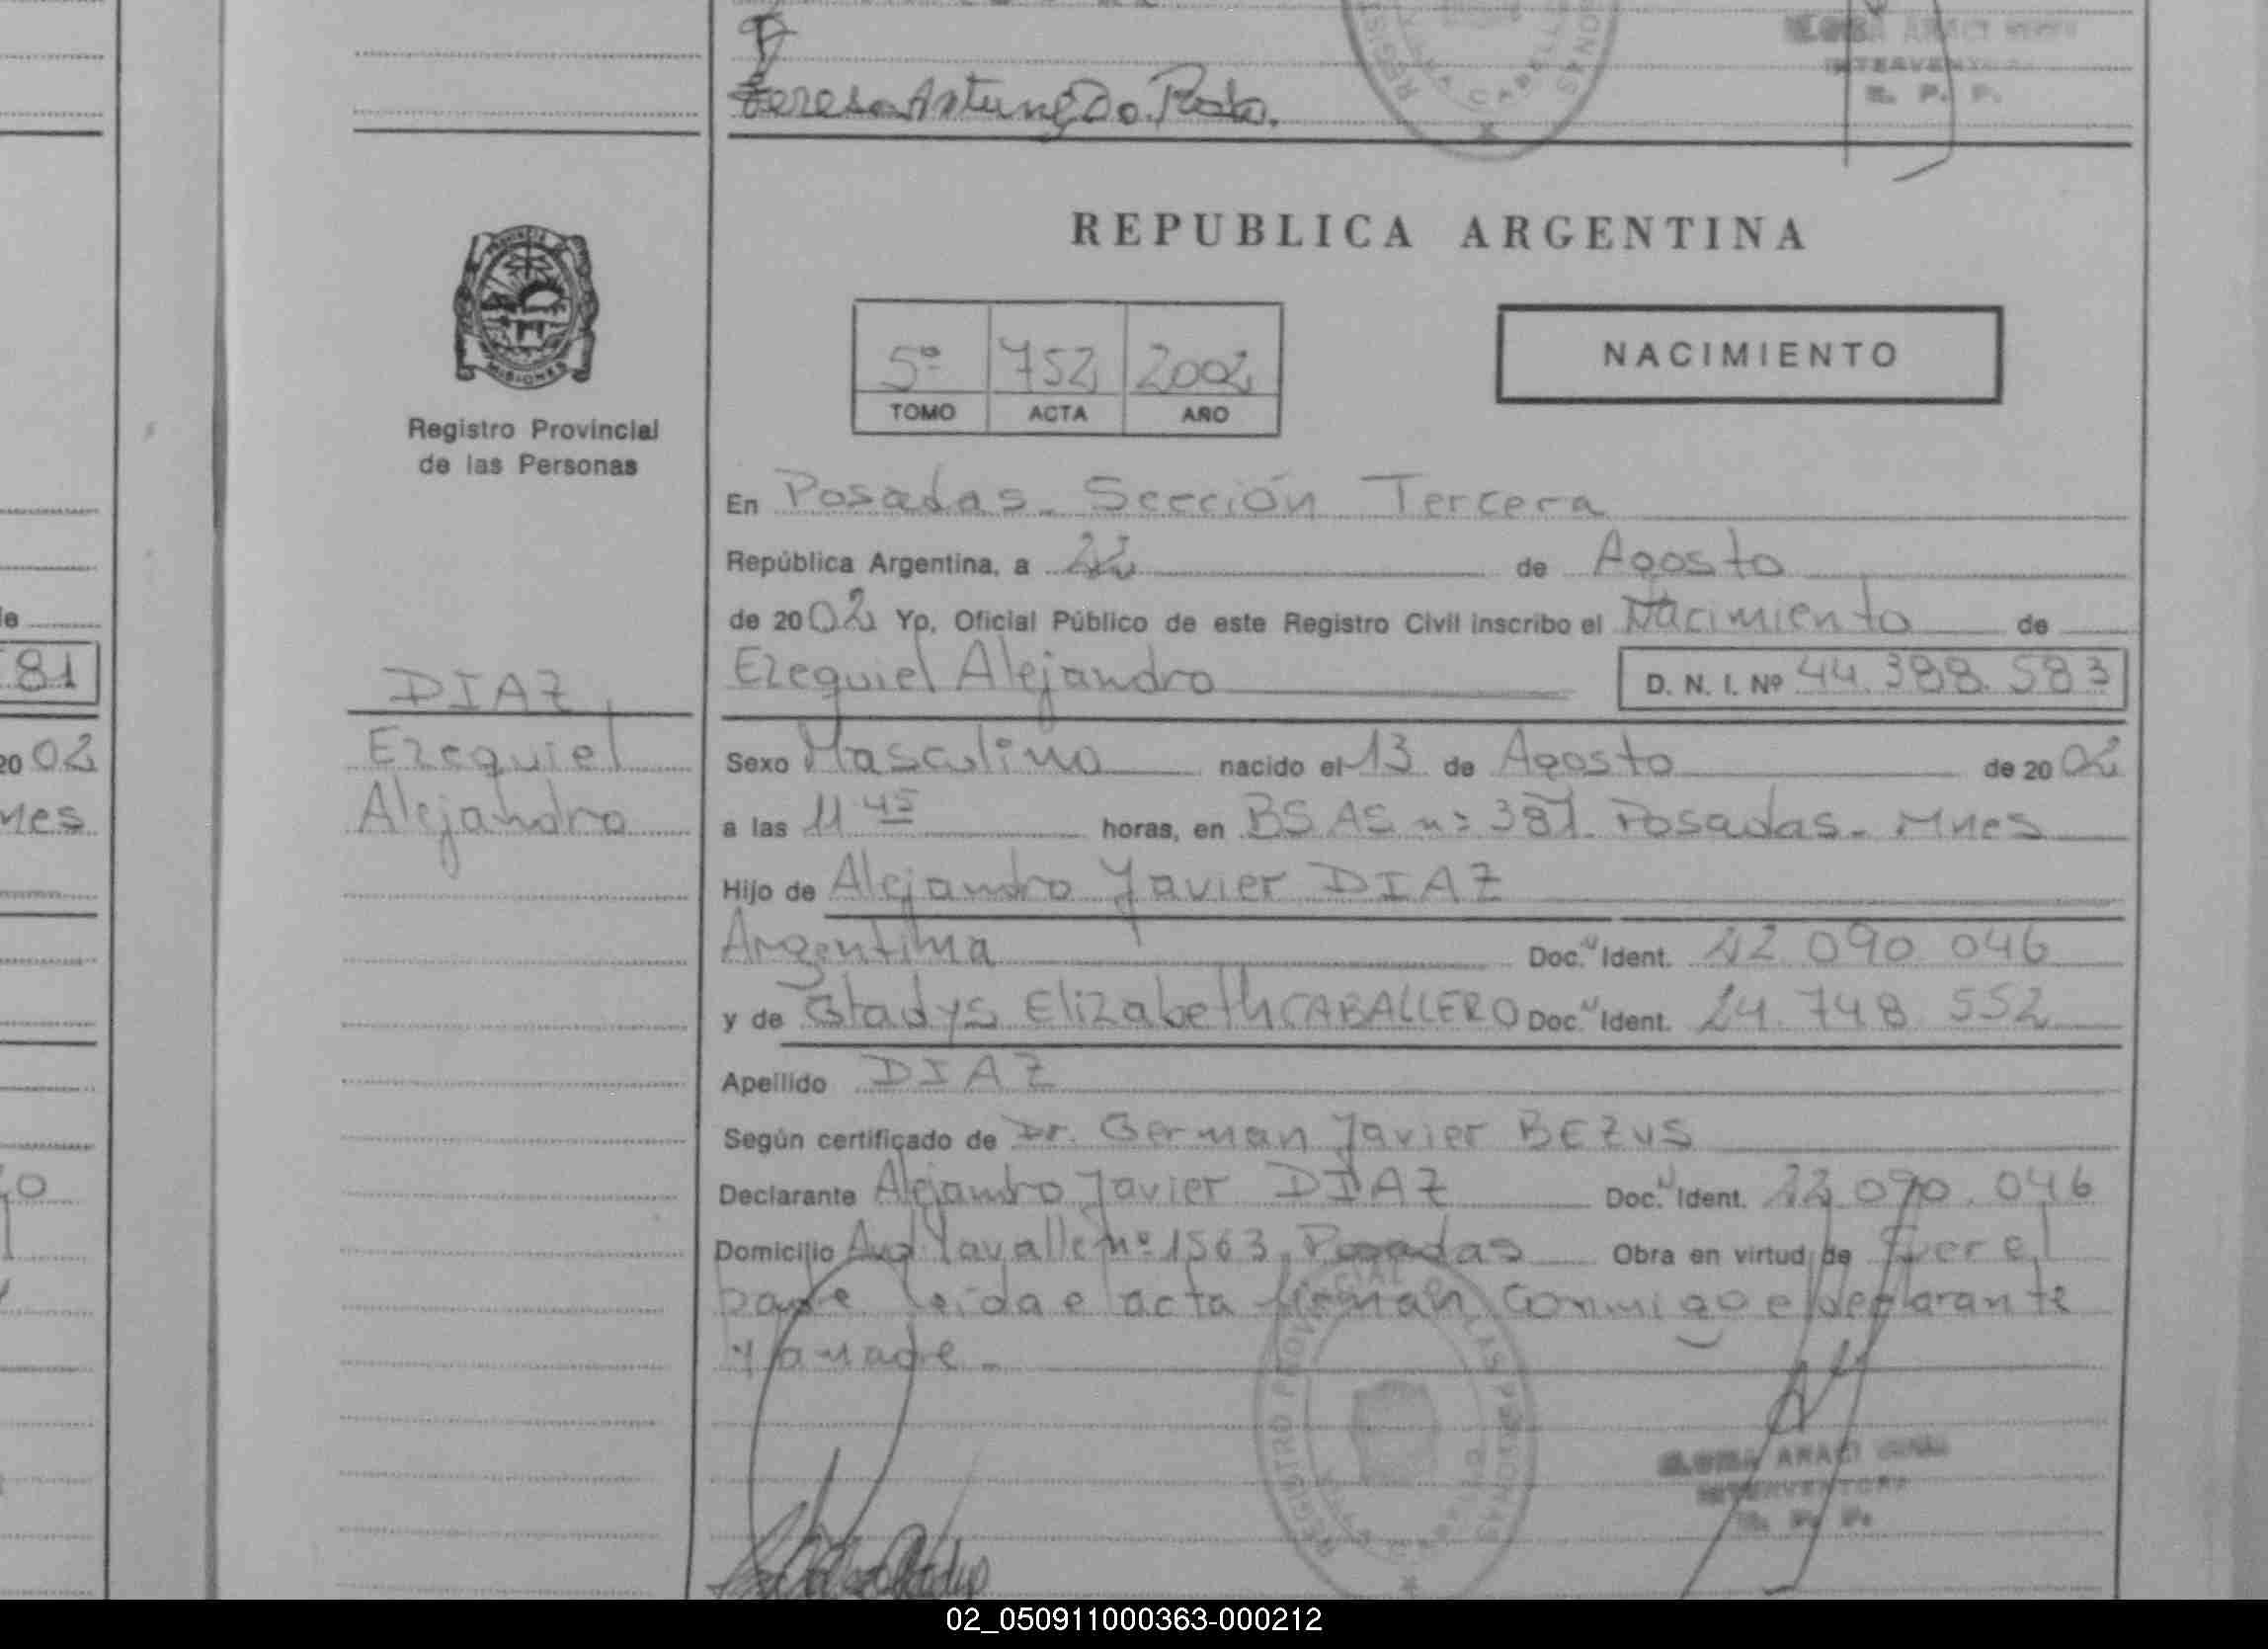 Teresa Antunez Do. Prado.
INTERVENTORA
R. P. P.
REPUBLICA ARGENTINA
PROVINCIA DE
MISIONES
Registro Provincial
de las Personas
5º 752 2002
TOMO ACTA AÑO
NACIMIENTO
En Posadas - Sección Tercera
República Argentina, a 22 de Agosto
de 2002 Yo, Oficial Público de este Registro Civil inscribo el Nacimiento de
Ezequiel Alejandro D. N. I. Nº 44.388.583
81
DIAZ,
Ezequiel
Alejandro
2002
Mnes
Sexo Masculino nacido el 13 de Agosto de 2002
a las 11 45 horas, en BS AS nº 381 Posadas - Mnes
Hijo de Alejandro Javier DIAZ
Argentina Doc. Ident. 22 090 046
y de Gladys Elizabeth CABALLERO Doc. Ident. 24 748 552
Apellido DIAZ
Según certificado de Dr. German Javier BEZUS
Declarante Alejandro Javier DIAZ Doc. Ident. 22 090 046
Domicilio Avd Lavalle nº 1563 Posadas Obra en virtud de ser el
padre leida el acta firman conmigo el declarante
y la madre -
REGISTRO PROVINCIAL DE LAS PERSONAS
ARACI
INTERVENTORA
R. P. P.
02_050911000363-000212